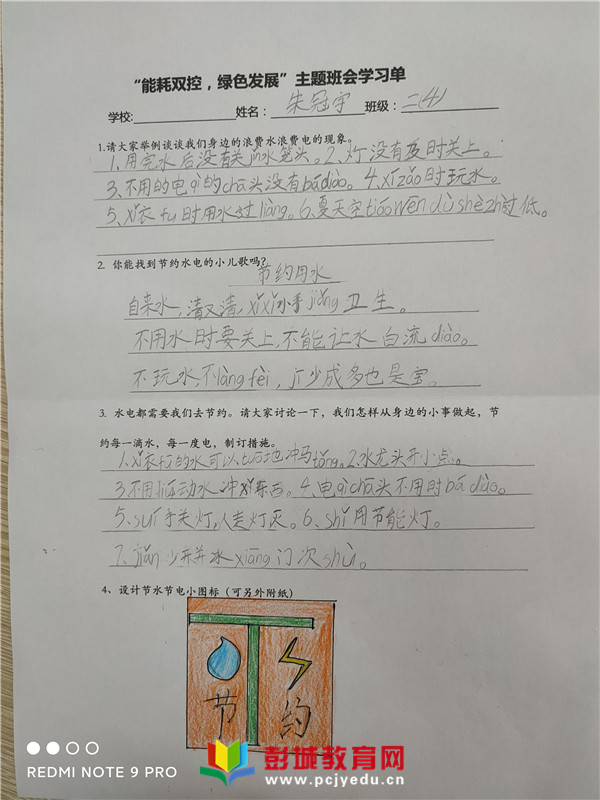 “能耗双控，绿色发展”主题班会学习单
学校: 姓名: 朱冠宇 班级: 二(4)
1.请大家举例谈谈我们身边的浪费水浪费电的现象。
1.用完水后没有关jǐn水笼头。2.灯没有及时关上。
3.不用的电qì的chā头没有bádiào。4.xǐzǎo时玩水。
5.xǐ衣fu时用水过liàng。6.夏天空tiáowēn dù shèzhì过低。
2. 你能找到节约水电的小儿歌吗?
节约用水
自来水,清又清,xǐxǐ小手jiǎng卫生。
不用水时要关上,不能让水白流diào。
不玩水,不làng fèi,少成多也是宝。
3. 水电都需要我们去节约。请大家讨论一下，我们怎样从身边的小事做起，节
约每一滴水，每一度电，制订措施。
1.xǐ衣fu的水可以tuō地冲马tǒng。2.水龙头开小点。
3.不用liú动水冲xǐ东西。4.电qì chā头不用时bá diào。
5.suí手关灯,人走灯灭。6.shǐ用节能灯。
7.jiǎn少开并冰xiāng门次shù。
4、设计节水节电小图标（可另外附纸）
节 约
REDMI NOTE 9 PRO
彭城教育网
www.pcjyedu.cn